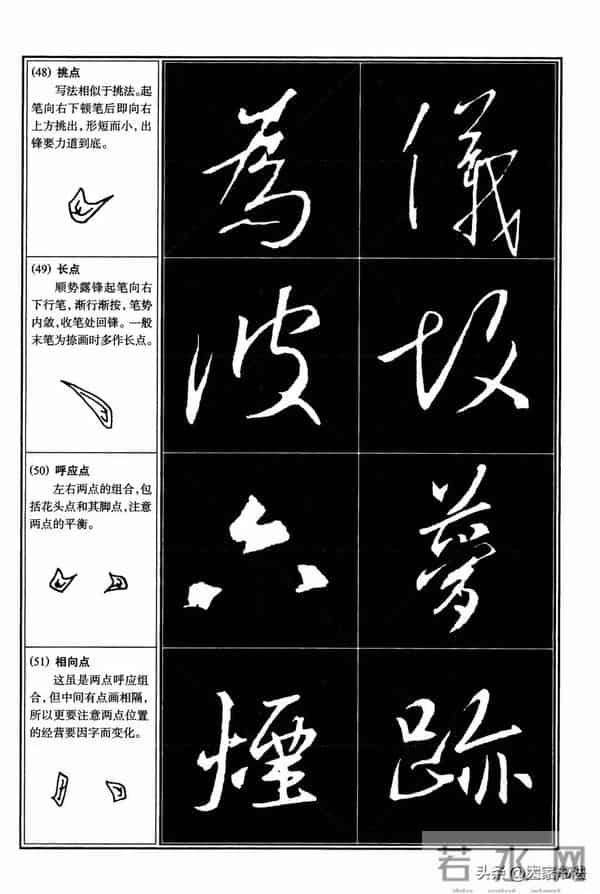 (48) 挑点
写法相似于挑法。起
笔向右下顿笔后即向右
上方挑出，形短而小，出
锋要力道到底。
為 儀
(49) 长点
顺势露锋起笔向右
下行笔，渐行渐按，笔势
内敛，收笔处回锋。一般
末笔为捺画时多作长点。
波
(50) 呼应点
左右两点的组合，包
括花头点和其脚点，注意
两点的平衡。
六 夢
(51) 相向点
这虽是两点呼应组
合，但中间有点画相隔，
所以更要注意两点位置
的经营要因字而变化。
煙 跡
若水网
头条